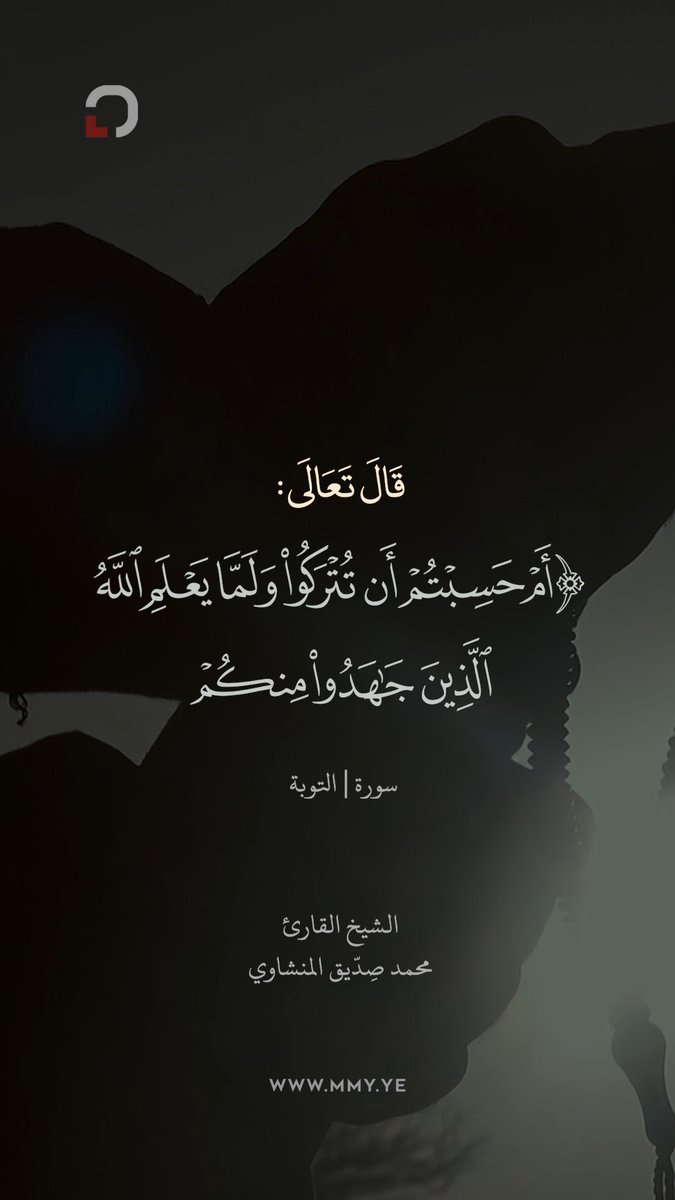 قَالَ تَعَالَى:
﴿أَمۡ حَسِبۡتُمۡ أَن تُتۡرَكُواْ وَلَمَّا يَعۡلَمِ ٱللَّهُ
ٱلَّذِينَ جَٰهَدُواْ مِنكُمۡ
سورة | التوبة
الشيخ القارئ
محمد صِدّيق المنشاوي
WWW.MMY.YE